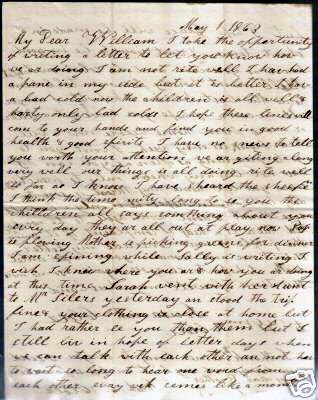 May 1. 1863
My Dear William I take the opportunity
of writing a letter to let you know how
we ar doing I am not rite well I hav had
a pane in my side but it is better I hav
a bad cold now the children is all well &
harty only bad colds I hope these lines will
com to your hands and find you in good
health & good spirits I have no new to tell
you worth your attention we ar giting along
very well our things is all doing rite well
so far as I know I have sheard the sheep
I think the time mity long to se you the
children all says something about you
every day they ar all out at play now Pap
is plowing Mother is picking greens for dinner
I am spining while Sally is writing I
wish I knew where you ar & how you ar doing
at this time Sarah went with her
to Mr yesterday an stood the trip
fine your clothing is close at home but
I had rather se you than them but I
still liv in hope of better days when
we can talk with each other an not hav
to wait so long to hear one word from
each other evry wek semes like a month